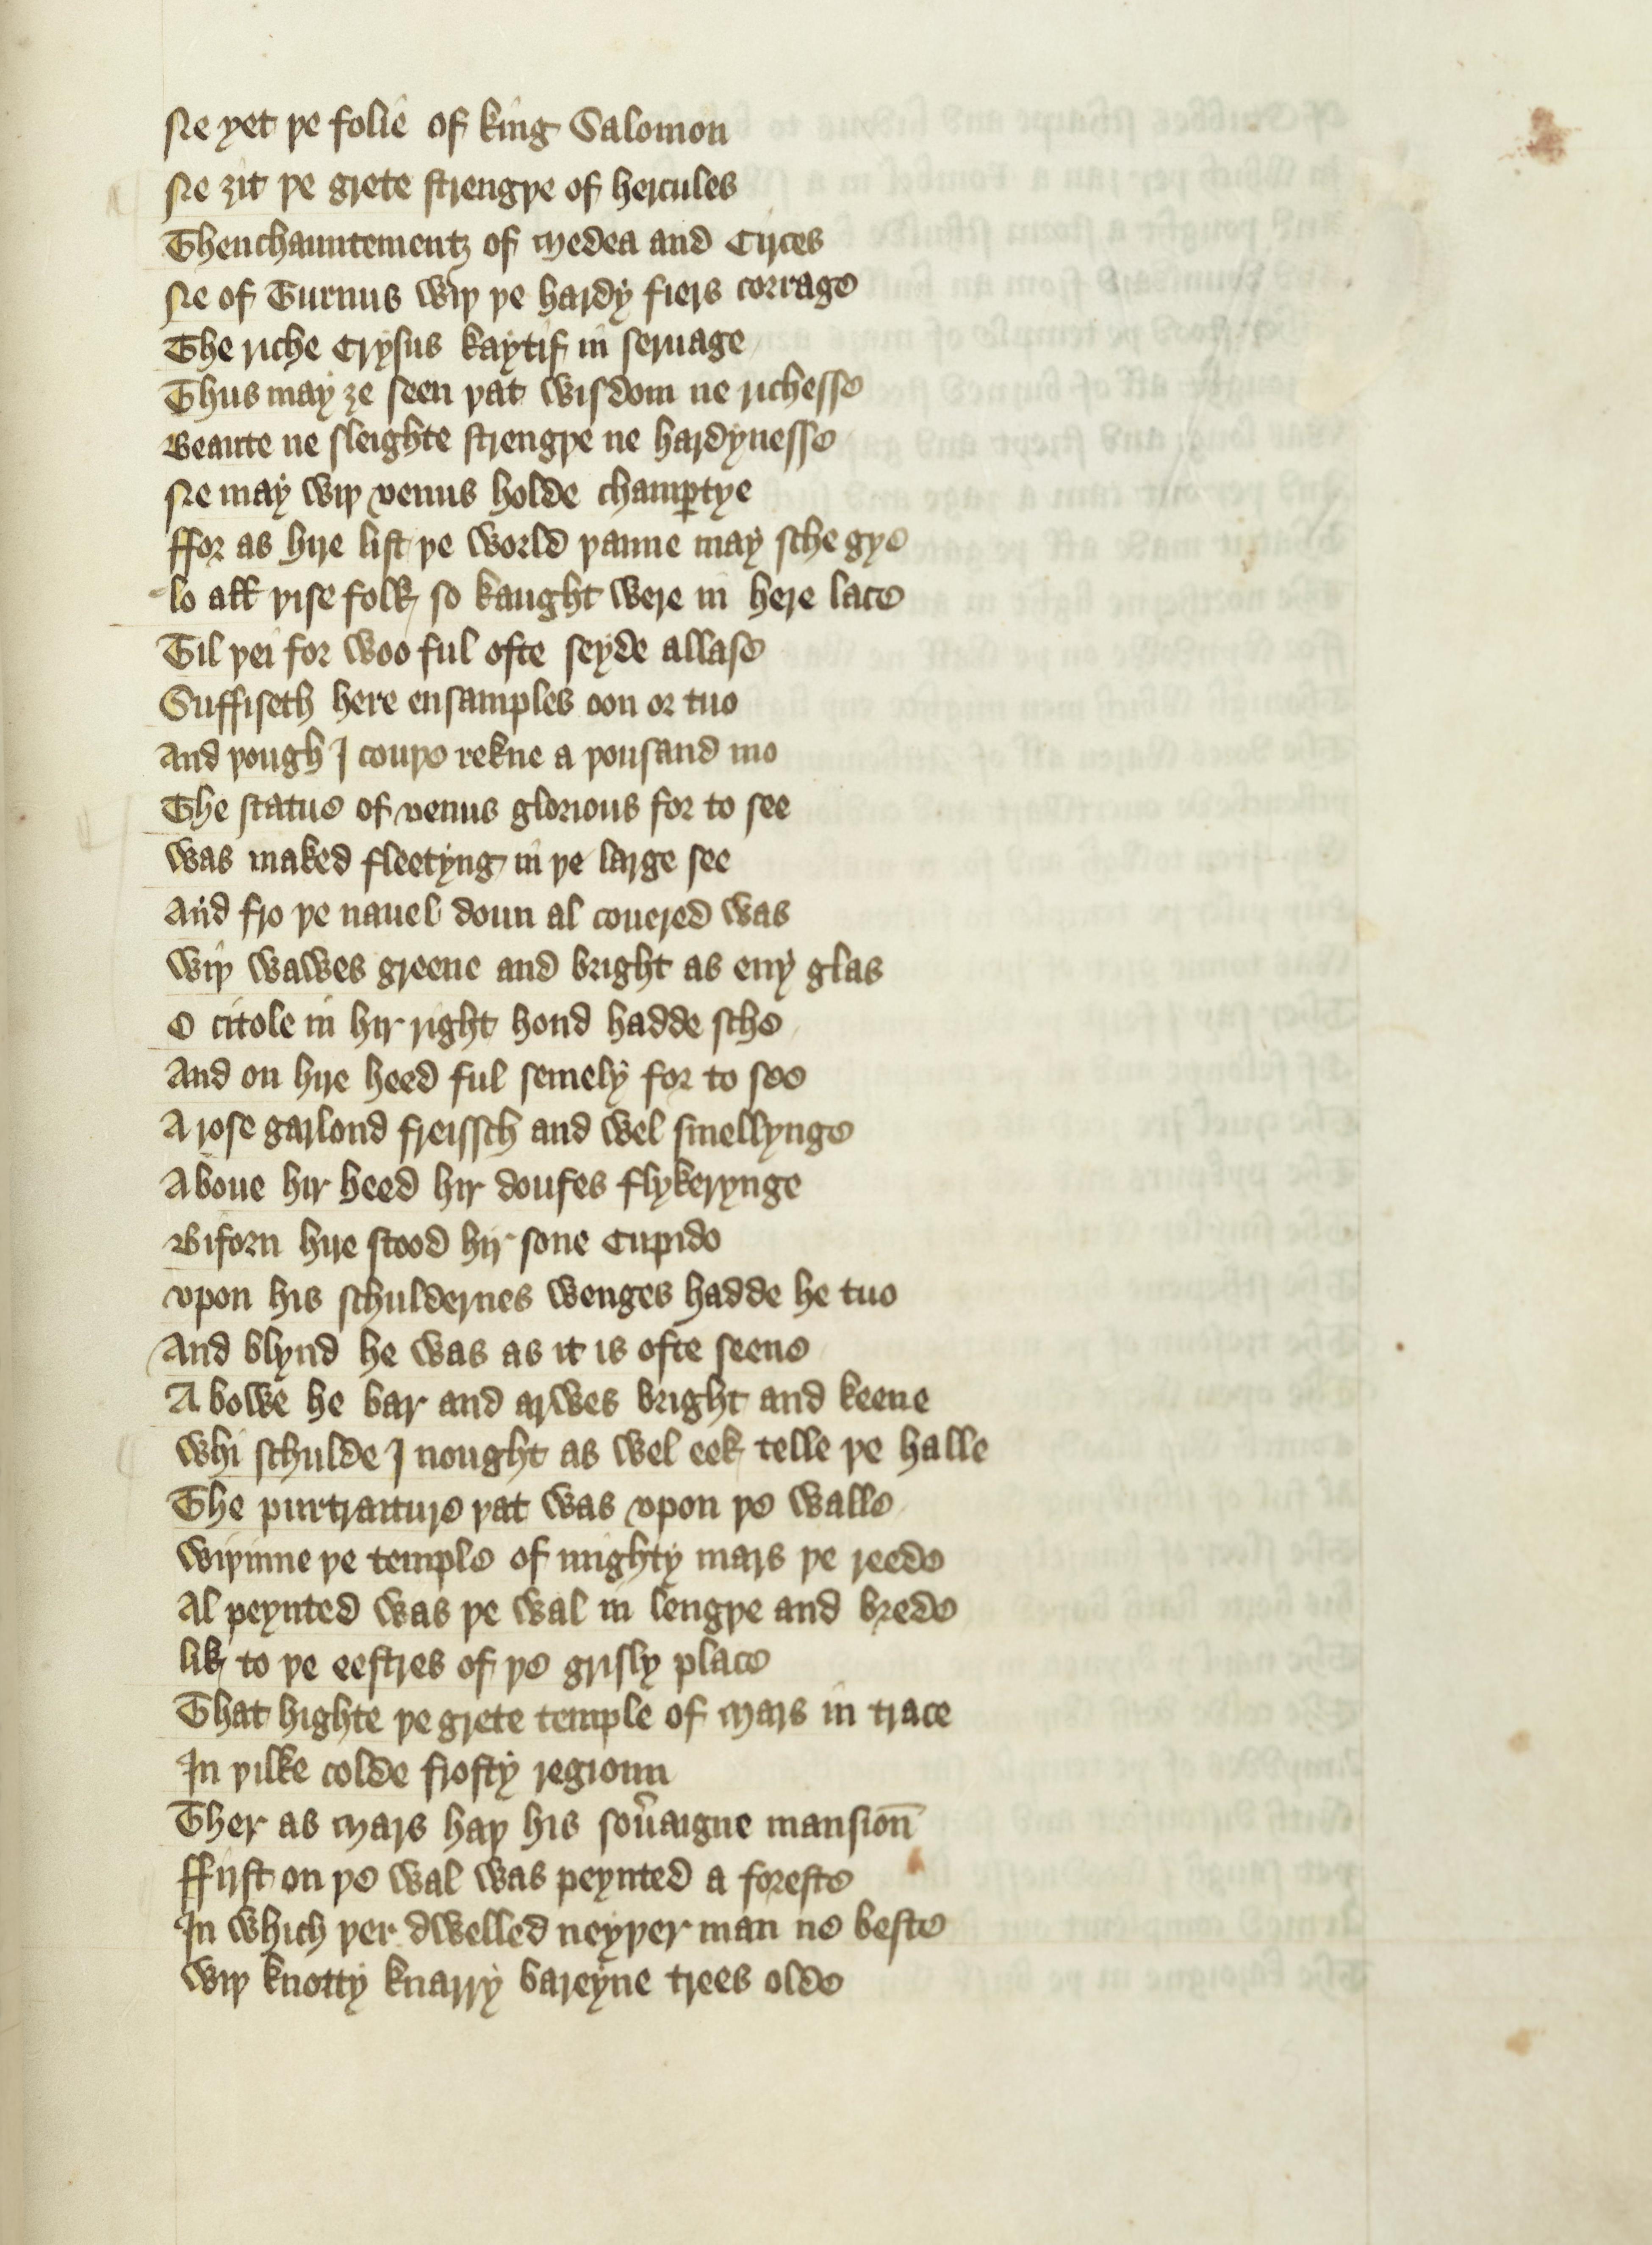 Ne yet þe folie of king Salomon
Ne ȝit þe grete strengþe of hercules
Thenchauntementz of Medea and Circes
Ne of Turnus wiþ þe hardy fiers corrage
The riche Crysus kaytif in seruage
Thus may ȝe seen þat wisdom ne richesse
Beaute ne sleighte strengþe ne hardynesse
Ne may wiþ venus holde champꝑtye
ffor as hire list þe world þanne may sche gye
lo all þise folk so kaught were in here lace
Til þei for woo ful ofte seyde allase
Suffiseth here ensamples oon or tuo
And þough I couþe rekne a þousand mo
The statue of venus glorious for to see
was maked fleetyng in þe large see
And fro þe nauel doun al couered was
wiþ wawes greene and bright as eny glas
O citole in hir right hond hadde sche
And on hire heed ful semely for to see
A rose garlond freissch and wel smellynge
Aboue hir heed hir doufes flykerynge
Biforn hire stood hir sone Cupido
vpon his schuldernes wenges hadde he tuo
And blynd he was as it is ofte seene
A bowe he bar and arwes bright and keene
whi schulde I nought as wel eek telle þe halle
The purtraiture þat was vpon þe walle
wiþinne þe temple of mighty mars þe reede
Al peynted was þe wal in lengþe and brede
lik to þe eestres of þe grisly place
That highte þe grete temple of Mars in trace
In þilke colde frosty regioun
Ther as Mars haþ his sou̾aigne mansion̄
ffirst on þe wal was peynted a foreste
In which þer dwelled neyþer man ne beste
wiþ knotty knarry bareyne trees olde